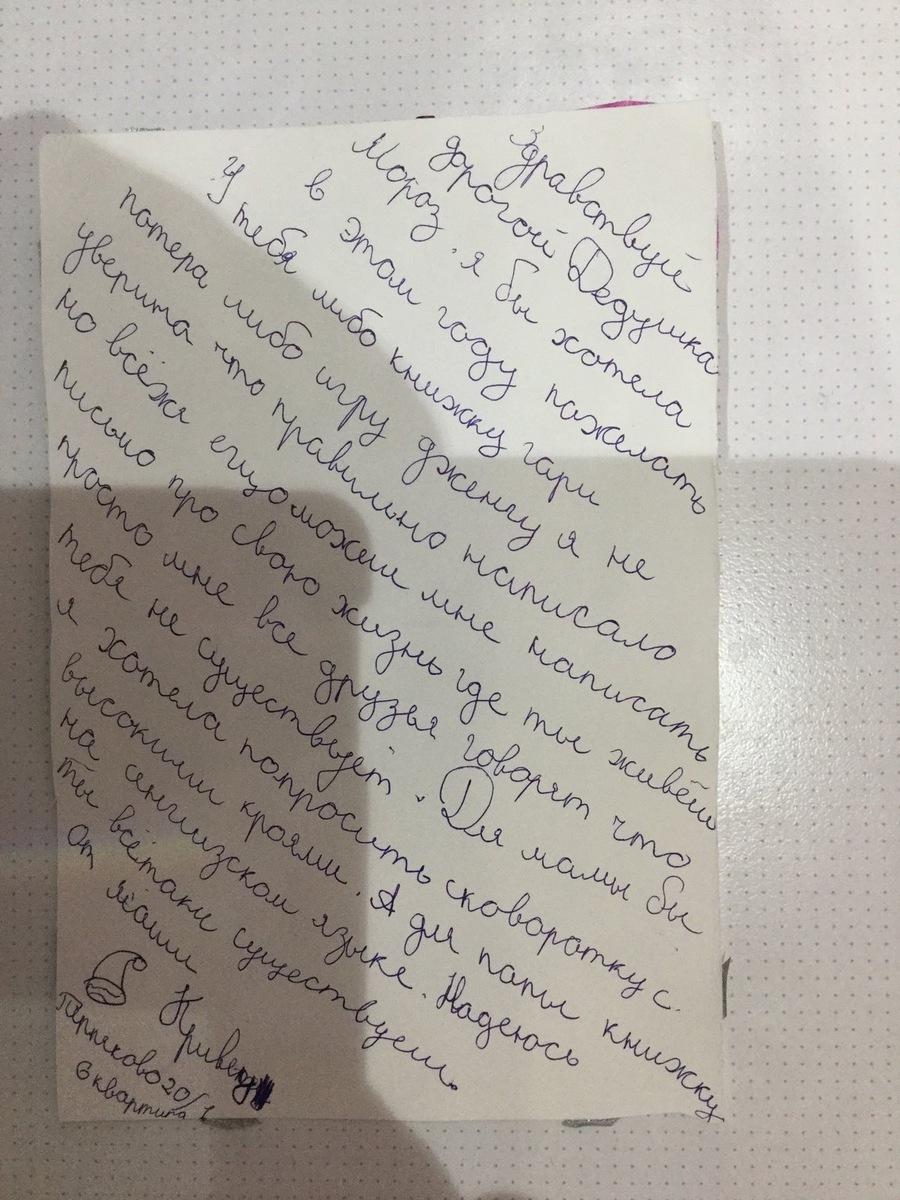 Здравствуй
дорогой Дедушка
Мороз. я бы хотела
в этом году пожелать
У тебя либо книжку гари
потера либо игру дженгу я не
уверина что правильно написало
но всёже ещо можеш мне написать
письмо про свою жизнь где ты живёш
просто мне все друзья говорят что
тебя не существует. Для мамы бы
я хотела попросить сковоротку с
высокими кроями. А для папы книжку
на енглизском языке. Надеюсь
ты всётаки существуеш.
От
Кривец
20/1
6 квартира